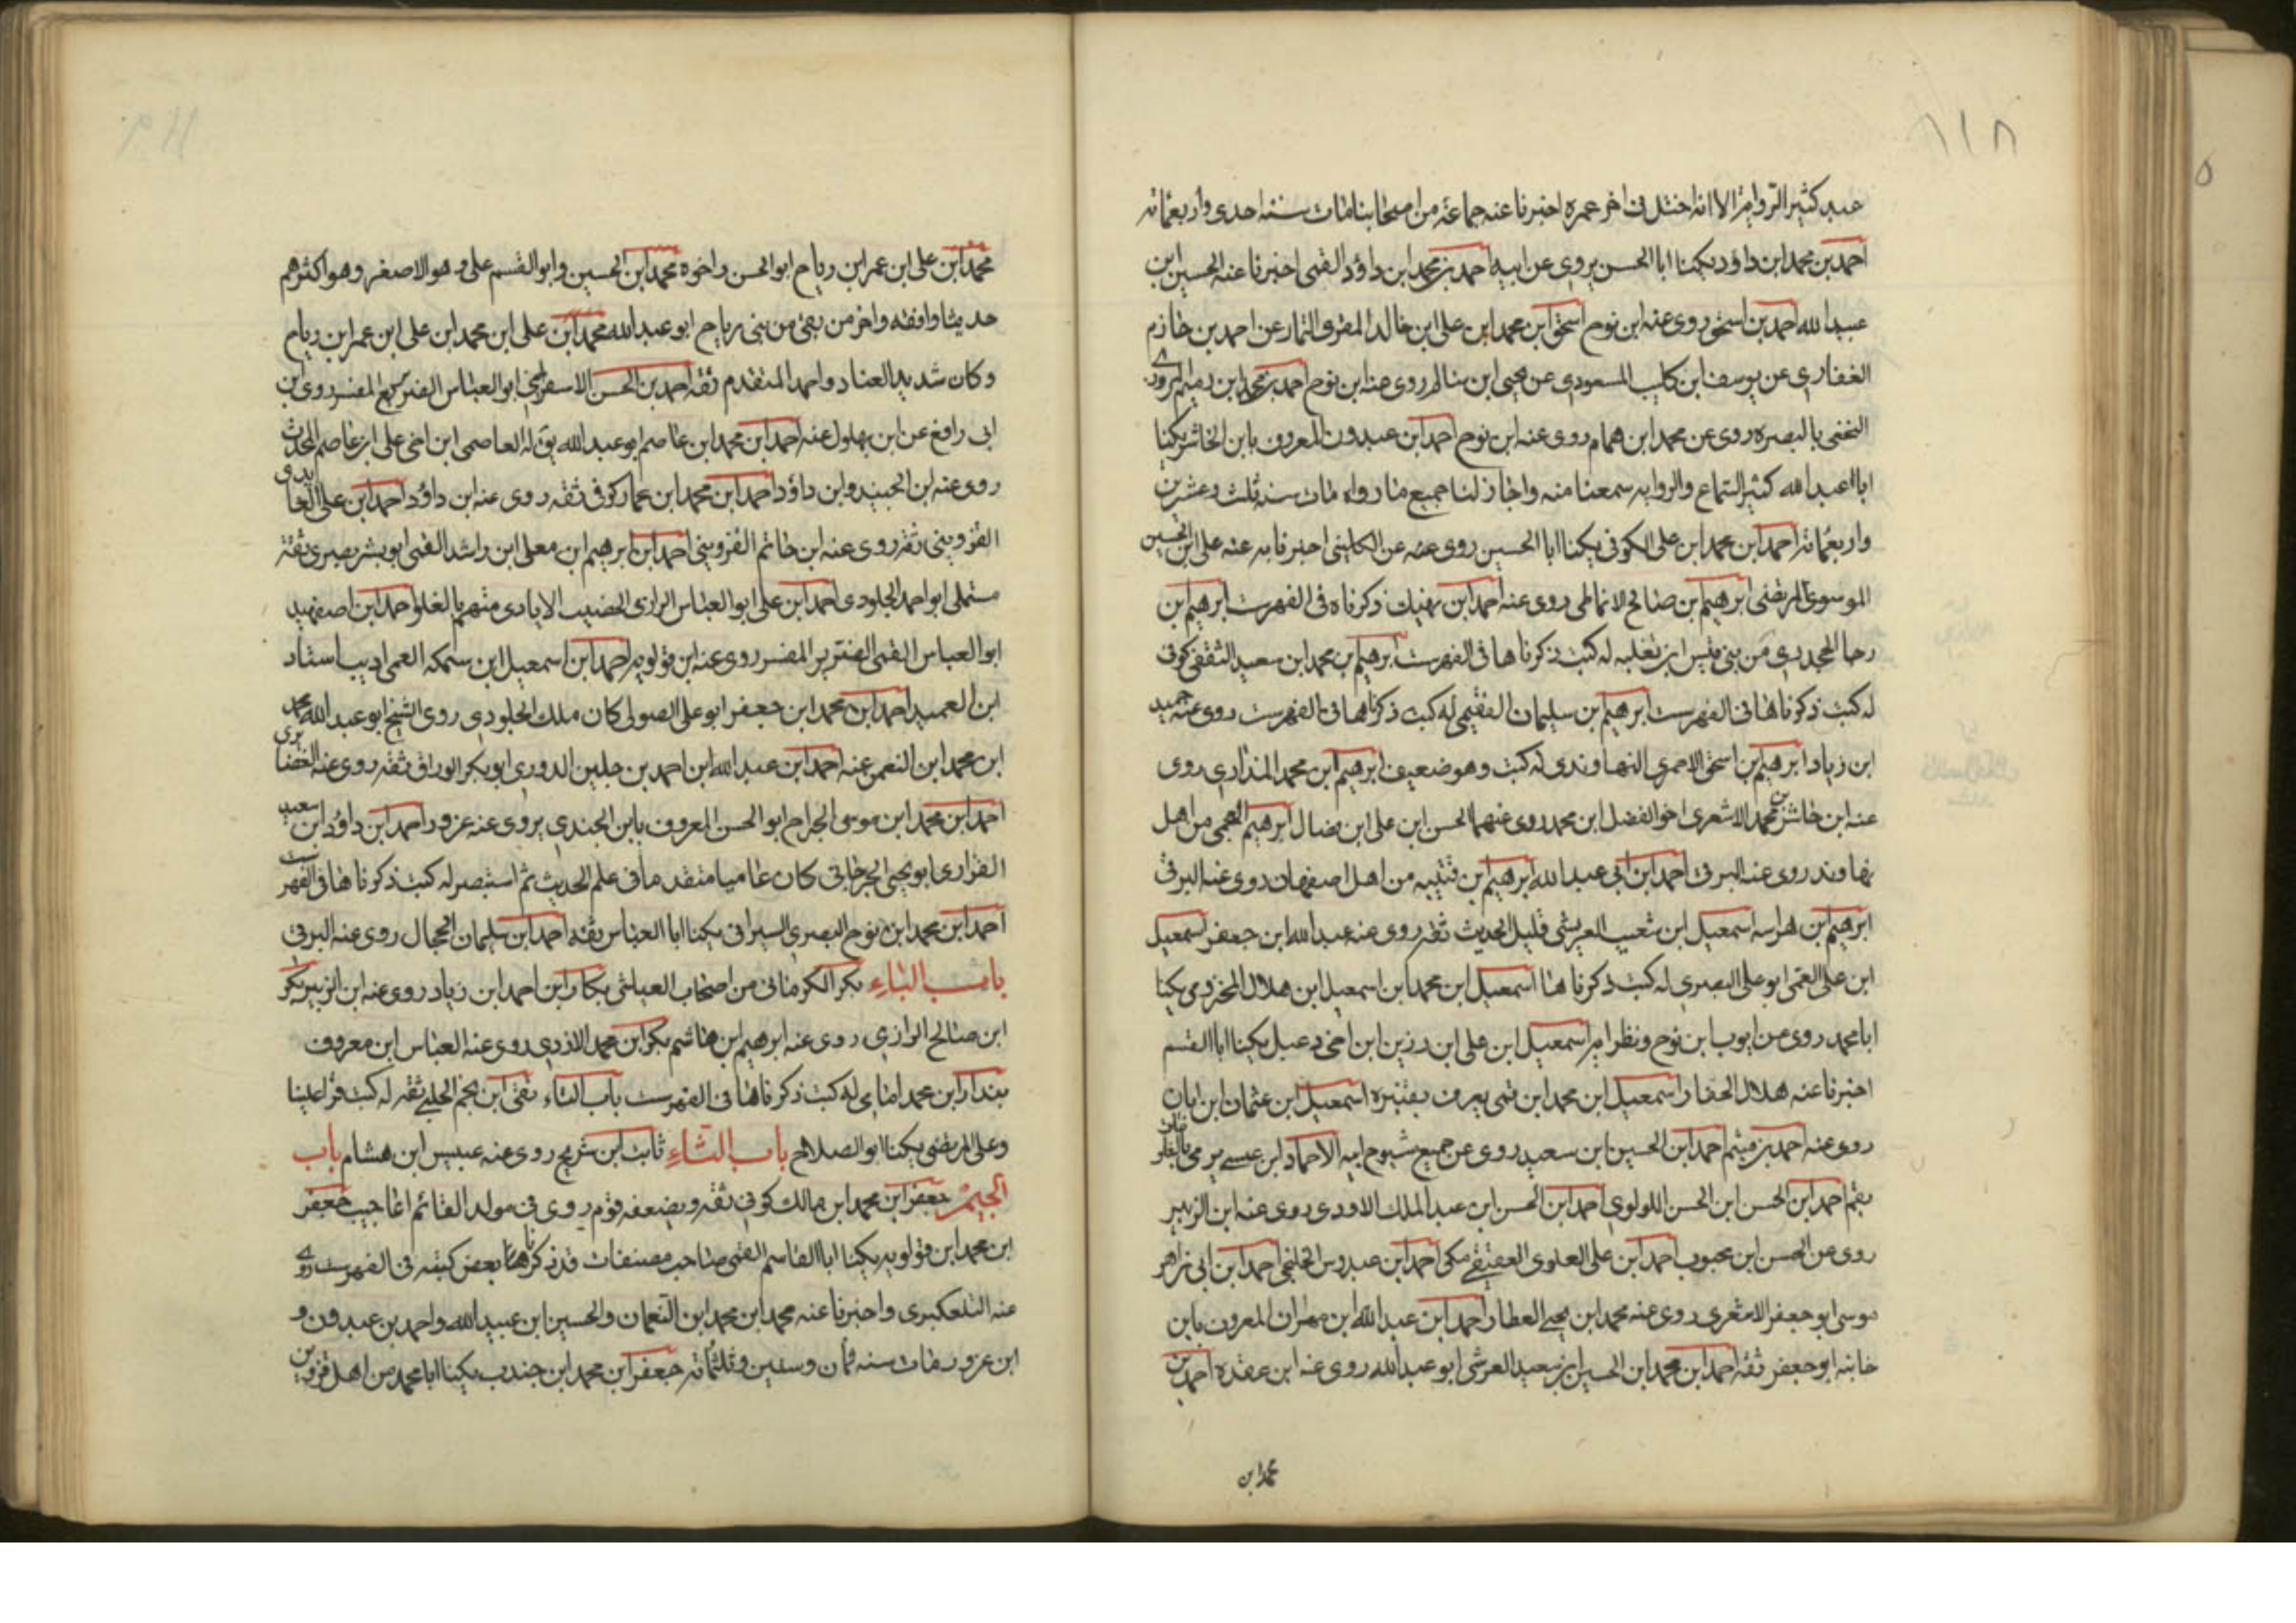 عبيد كثير الرواية الا انه اختل فى اخر عمره اخبرنا عنه جماعة من اصحابنا مات سنة احدى واربعمائة
احمد بن محمد ابن داود يكنا ابا الحسن يروى عن ابيه احمد بن محمد ابن داود القمى اخبرنا عنه الحسين ابن
عبيد الله احمد بن اسحق روى عنه ابن نوح اسحق ابن محمد ابن على ابن خالد المقرى التمار عن احمد بن حازم
الغفارى عن يوسف ابن كليب المسعودى عن يحيى ابن سالم روى عنه ابن نوح احمد بن محمد ابن رميم المروزى
النخعى بالبصره روى عن محمد ابن همام روى عنه ابن نوح احمد ابن عبدون المعروف بابن الحاشر يكنا
ابا عبد الله كثير السماع والروايه سمعنا منه واجاز لنا جميع ما رواه مات سنه ثلث وعشرين
واربعمائه احمد ابن محمد ابن على الكوفى يكنا ابا الحسين روى عنه عن الكلينى اخبرنا به عنه على ابن الحسين
الموسوى المرتضى ابرهيم بن صالح الانماطى روى عنه احمد ابن نهيك ذكرناه فى الفهرست ابرهيم بن
رجا الجحدرى من بنى قيس ابن ثعلبه له كتب ذكرناها فى الفهرست ابرهيم بن محمد ابن سعيد الثقفى كوفى
له كتب ذكرناها فى الفهرست ابرهيم بن سليمان الفقيمى له كتب ذكرناها فى الفهرست روى عنه حميد
ابن زياد ابرهيم بن اسحق الاحمرى النهاوندى له كتب وهو ضعيف ابرهيم ابن محمد المذارى روى
عنه ابن حاشر بن محمد الاشعرى اخو الفضل ابن محمد روى عنهما الحسن ابن على ابن فضال ابرهيم العجمى من اهل
نهاوند روى عنه البرقى احمد ابن ابى عبد الله ابرهيم ابن قتيبه من اهل اصفهان روى عنه البرقى
ابرهيم بن هراسه اسمعيل ابن شعيب العريشى قليل الحديث ثقه روى عنه عبد الله ابن جعفر اسمعيل
ابن على القمى ابو على البصرى له كتب ذكرناها اسمعيل ابن محمد ابن اسمعيل ابن هلال المخزومى يكنا
ابا محمد روى عن ايوب ابن نوح ونظرايه اسمعيل ابن على ابن رزين ابن اخى دعبل يكنا ابا القسم
اخبرنا عنه هلال الحفار اسمعيل ابن محمد ابن قمى يعرف بقنبره اسمعيل ابن عثمان ابن ابان
روى عنه احمد بن ميثم احمد ابن الحسين ابن سعيد روى عن جميع شيوخ ابيه الا حماد ابن عيسى يرمى بالغلو مات
بقم احمد ابن الحسن ابن الحسن اللولوى احمد ابن الحسن ابن عبد الملك الاودى روى عنه ابن الزبير
روى عن الحسن ابن محبوب احمد ابن على العلوى العقيقى مكى احمد ابن عبدوس الخلنجى احمد ابن ابى زاهر
موسى ابو جعفر الاشعرى روى عنه محمد ابن يحيى العطار احمد ابن عبد الله ابن مهران المعروف بابن
خانبه ابو جعفر ثقه احمد ابن محمد ابن الحسين ابن سعيد القرشى ابو عبد الله روى عنه ابن عقده احمد بن
محمد ابن
محمد ابن على ابن عمر ابن رباح ابو الحسن واخوه محمد ابن الحسين وابو القسم على وهو الاصغر وهو اكثرهم
حديثا وافقه واخر من بقى من بنى رباح ابو عبد الله محمد ابن على ابن محمد ابن على ابن عمر ابن رباح
وكان شديد العناد واحمد المتقدم ثقه احمد بن الحسن الاسفراينى ابو العباس الضرير المفسر روى ابن
ابى رافع عن ابن بهلول عنه احمد ابن محمد ابن عاصم ابو عبد الله يق له العاصمى ابن اخى على ابن عاصم المحدث
روى عنه ابن الجنيد وابن داود احمد ابن محمد ابن عمار كوفى ثقه روى عنه ابن داود احمد ابن على الفايدى
القزوينى ثقه روى عنه ابن حاتم القزوينى احمد ابن ابرهيم ابن معلى ابن راشد القمى ابو بشر بصرى ثقة
مستملى ابو احمد الجلودى احمد ابن على ابو العباس الرازى الخضيب الايادى متهم بالغلو احمد ابن اصفهبد
ابو العباس القمى الضرير المفسر روى عنه ابن قولويه احمد ابن اسمعيل ابن سمكه القمى اديب استاد
ابن العميد احمد ابن محمد ابن جعفر ابو على الصولى كان ملك الجلودى روى الشيخ ابو عبد الله محمد
ابن محمد ابن النعمن عنه احمد ابن عبد الله ابن احمد بن جلين الدورى ابو بكر الوراق ثقه روى عنه الغضايرى
احمد ابن محمد ابن موسى الجراح ابو الحسن المعروف بابن الجندى يروى عنه عزور احمد ابن داود ابن سعيد
الفزارى ابو يحيى الجرجانى كان عاميا متقدما فى علم الحديث ثم استبصر له كتب ذكرناها فى الفهرست
احمد ابن محمد ابن نوح البصرى السيرافى يكنا ابا العباس ثقه احمد ابن سليمان الحجال روى عنه البرقى
باب الباء بكر الكرمانى من اصحاب العياشى بكار ابن احمد ابن زياد روى عنه ابن الزبير بكر
ابن صالح الرازى روى عنه ابرهيم ابن هاشم بكر ابن محمد الازدى روى عنه العباس ابن معروف
بندار ابن محمد امامى له كتب ذكرناها فى الفهرست باب التاء تقى ابن نجم الحلبى ثقه له كتب قرا علينا
وعلى المرتضى يكنا ابو الصلاح باب الثاء ثابت ابن شريح روى عنه عبيس ابن هشام باب
الجيم جعفر ابن محمد ابن مالك كوفى ثقه ويضعفه قوم روى فى مولد القائم اعاجيب جعفر
ابن محمد ابن قولويه يكنا ابا القاسم القمى صاحب مصنفات قد ذكرنا هنا بعض كتبه فى الفهرست روى
عنه التلعكبرى واخبرنا عنه محمد ابن محمد ابن النعمان والحسين ابن عبيد الله واحمد بن عبدون و
ابن عزور مات سنه ثمان وستين وثلثمائه جعفر ابن محمد ابن جندب يكنا ابا محمد من اهل قزوين